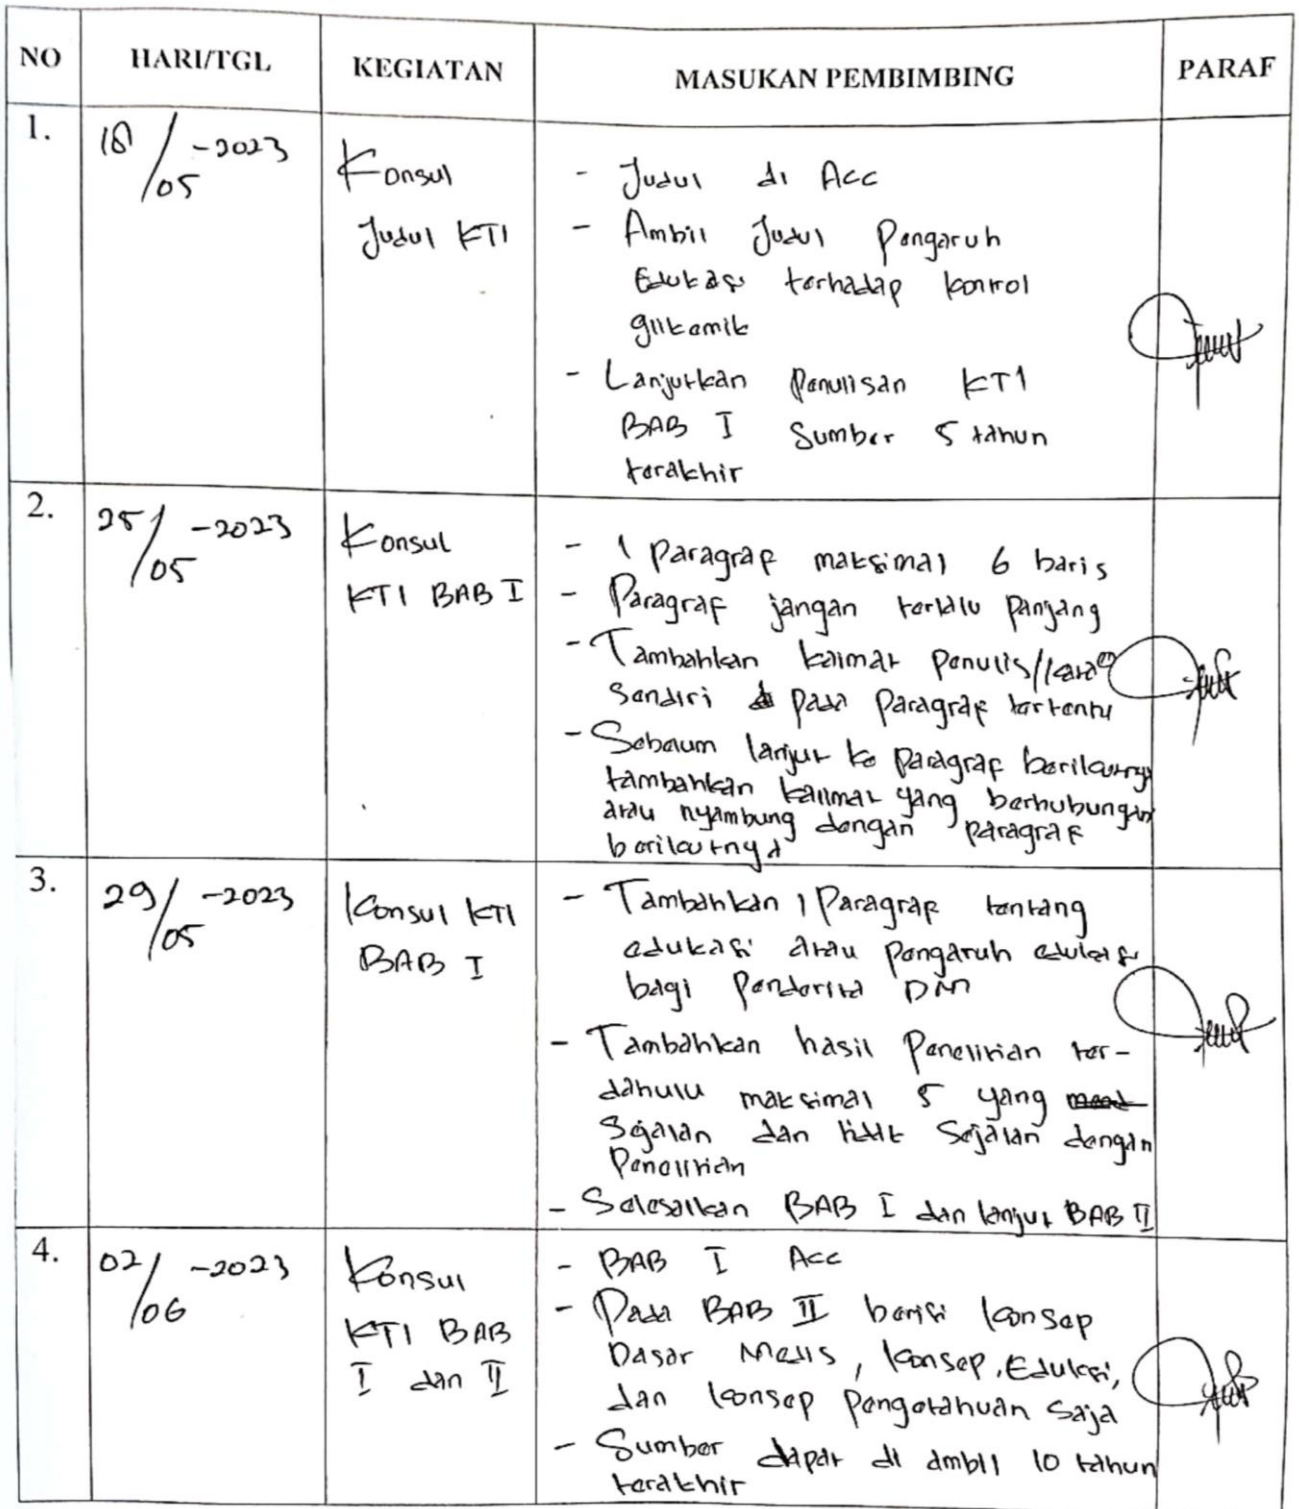 NO HARI/TGL KEGIATAN MASUKAN PEMBIMBING PARAF
1. 18/05-2023
Konsul
Judul KTI
- Judul di Acc
- Ambil Judul Pengaruh
Edukasi terhadap kontrol
glikemik
- Lanjutkan Penulisan KTI
BAB I Sumber 5 tahun
terakhir
2. 25/05-2023
Konsul
KTI BAB I
- 1 Paragraf maksimal 6 baris
- Paragraf jangan terlalu Panjang
- Tambahkan kalimat Penulis/kata"
Sendiri pada Paragraf tertentu
- Sebelum lanjut ke Paragraf berikutnya
tambahkan kalimat yang berhubungan
atau nyambung dengan paragraf
berikutnya
3. 29/05-2023
Konsul KTI
BAB I
- Tambahkan 1 Paragraf tentang
edukasi atau Pengaruh edukasi
bagi Penderita DM
- Tambahkan hasil Penelitian ter-
dahulu maksimal 5 yang
Sejalan dan tidak Sejalan dengan
Penelitian
- Selesaikan BAB I dan lanjut BAB II
4. 02/06-2023
Konsul
KTI BAB
I dan II
- BAB I Acc
- Pada BAB II berisi konsep
Dasar Medis, konsep, Edukasi,
dan konsep Pengetahuan Saja
- Sumber dapat di ambil 10 tahun
terakhir